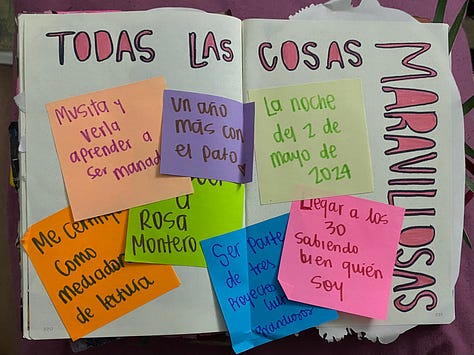 TODAS LAS COSAS
MARAVILLOSAS
Musita y
verla
aprender a
ser manad
Un año
más con
el pato
La noche
del 2 de
mayo de
2024
Me
Como
mediador
de lectura
a
ROSA
Montero
Ser parte
de tres
Proyectos
grandiosos
Llegar a los
30
sabiendo
bien quién
soy